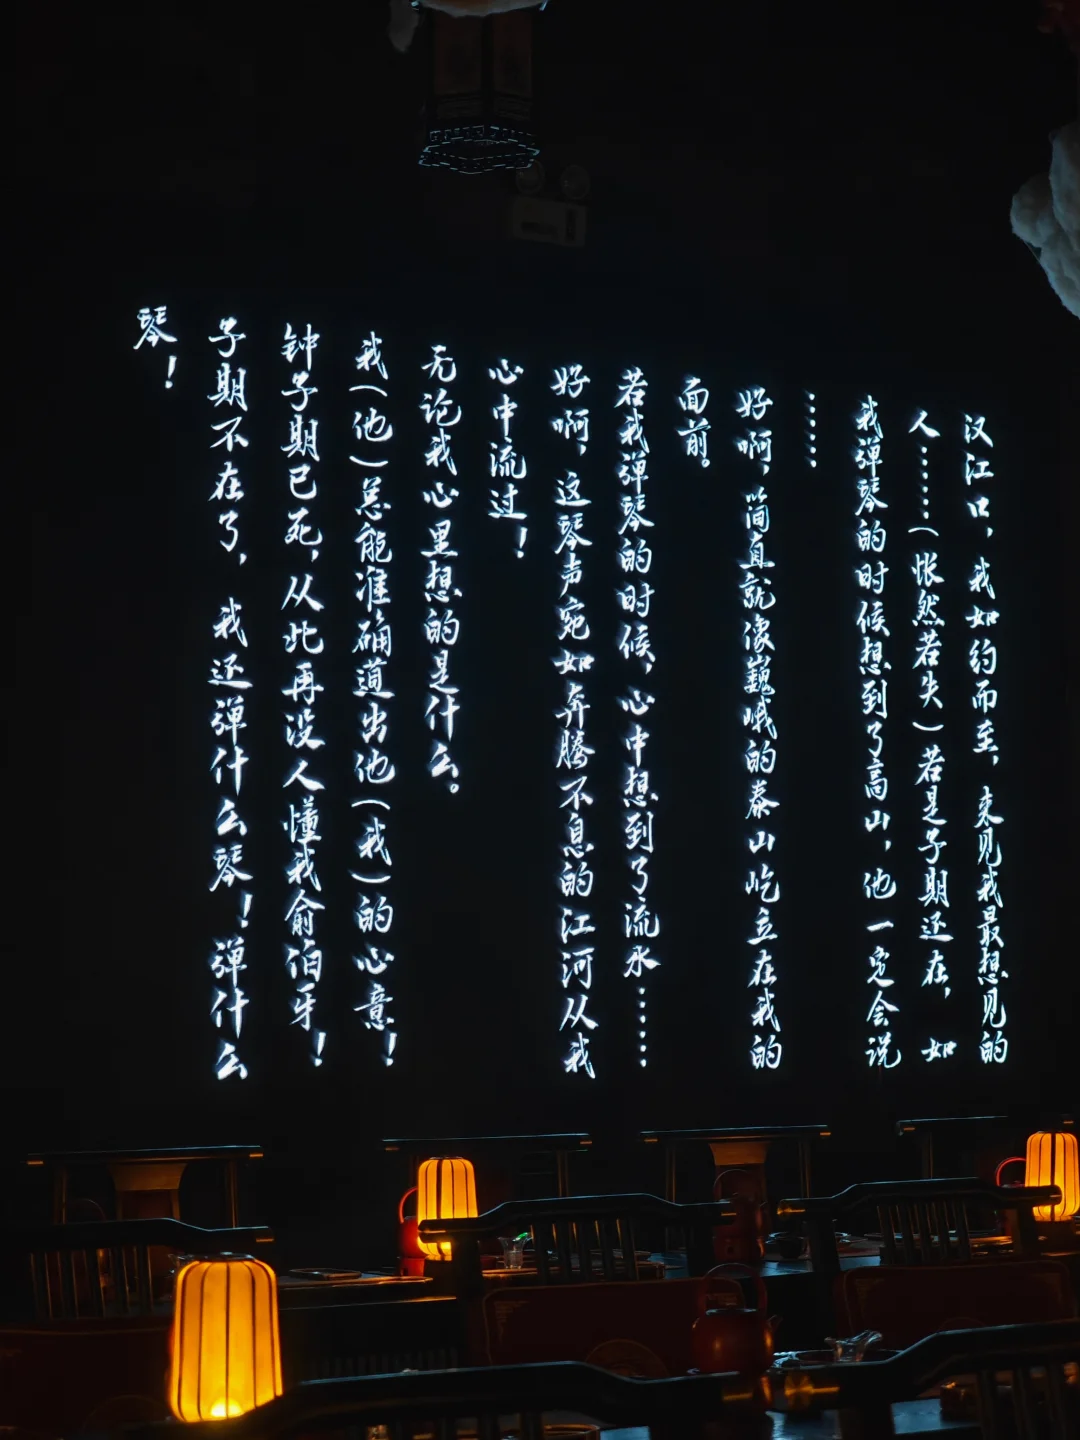 汉江口，我如约而至，来见我最想见的
人……（怅然若失）若是子期还在，如
我弹琴的时候想到了高山，他一定会说
……
好啊，简直就像巍峨的泰山屹立在我的
面前。
若我弹琴的时候，心中想到了流水……
好啊，这琴声宛如奔腾不息的江河从我
心中流过！
无论我心里想的是什么。
我（他）总能准确道出他（我）的心意！
钟子期已死，从此再没人懂我俞伯牙！
子期不在了，我还弹什么琴！弹什么
琴！